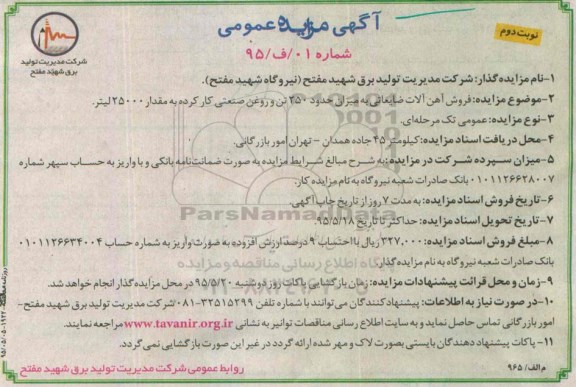 آگهی مزایده عمومی
نوبت دوم
شماره ۰۱/ف/۹۵
شرکت مدیریت تولید
برق شهید مفتح
۱-نام مزایده گذار: شرکت مدیریت تولید برق شهید مفتح (نیروگاه شهید مفتح).
۲-موضوع مزایده: فروش آهن آلات ضایعاتی به میزان حدود ۲۵۰ تن و روغن صنعتی کار کرده به مقدار ۲۵۰۰۰ لیتر.
۳-نوع مزایده: عمومی تک مرحله‌ای.
۴-محل دریافت اسناد مزایده: کیلومتر ۴۵ جاده همدان - تهران امور بازرگانی.
۵-میزان سپرده شرکت در مزایده: به شرح مبالغ شرایط مزایده به صورت ضمانت‌نامه بانکی و یا واریز به حساب سپهر شماره
۰۱۰۱۱۲۶۶۲۸۰۰۷ بانک صادرات شعبه نیروگاه به نام مزایده گذار.
۶-تاریخ فروش اسناد مزایده: به مدت ۷ روز از تاریخ چاپ آگهی.
۷-تاریخ تحویل اسناد مزایده: حداکثر تا تاریخ ۹۵/۵/۱۸
۸-مبلغ فروش اسناد مزایده: ۳۲۷,۰۰۰ ریال با احتساب ۹ درصد ارزش افزوده به صورت واریز به شماره حساب ۰۱۰۱۱۲۶۶۳۴۰۰۴
بانک صادرات شعبه نیروگاه به نام مزایده گذار.
۹-زمان و محل قرائت پیشنهادات مزایده: زمان بازگشایی پاکات روز دوشنبه ۹۵/۵/۲۰ در محل مزایده گذار انجام خواهد شد.
۱۰-در صورت نیاز به اطلاعات: پیشنهاد کنندگان می‌توانند با شماره تلفن ۳۲۵۱۵۲۹۹-۰۸۱ شرکت مدیریت تولید برق شهید مفتح-
امور بازرگانی تماس حاصل نماید و به سایت اطلاع رسانی مناقصات توانیر به نشانی www.tavanir.org.ir مراجعه نمایند.
۱۱- پاکات پیشنهاد دهندگان بایستی بصورت لاک و مهر شده ارائه گردد در غیر این صورت بازگشایی نمی گردد.
م الف/ ۹۶۵
روابط عمومی شرکت مدیریت تولید برق شهید مفتح
ParsNamadData
پایگاه اطلاع رسانی مناقصه و مزایده